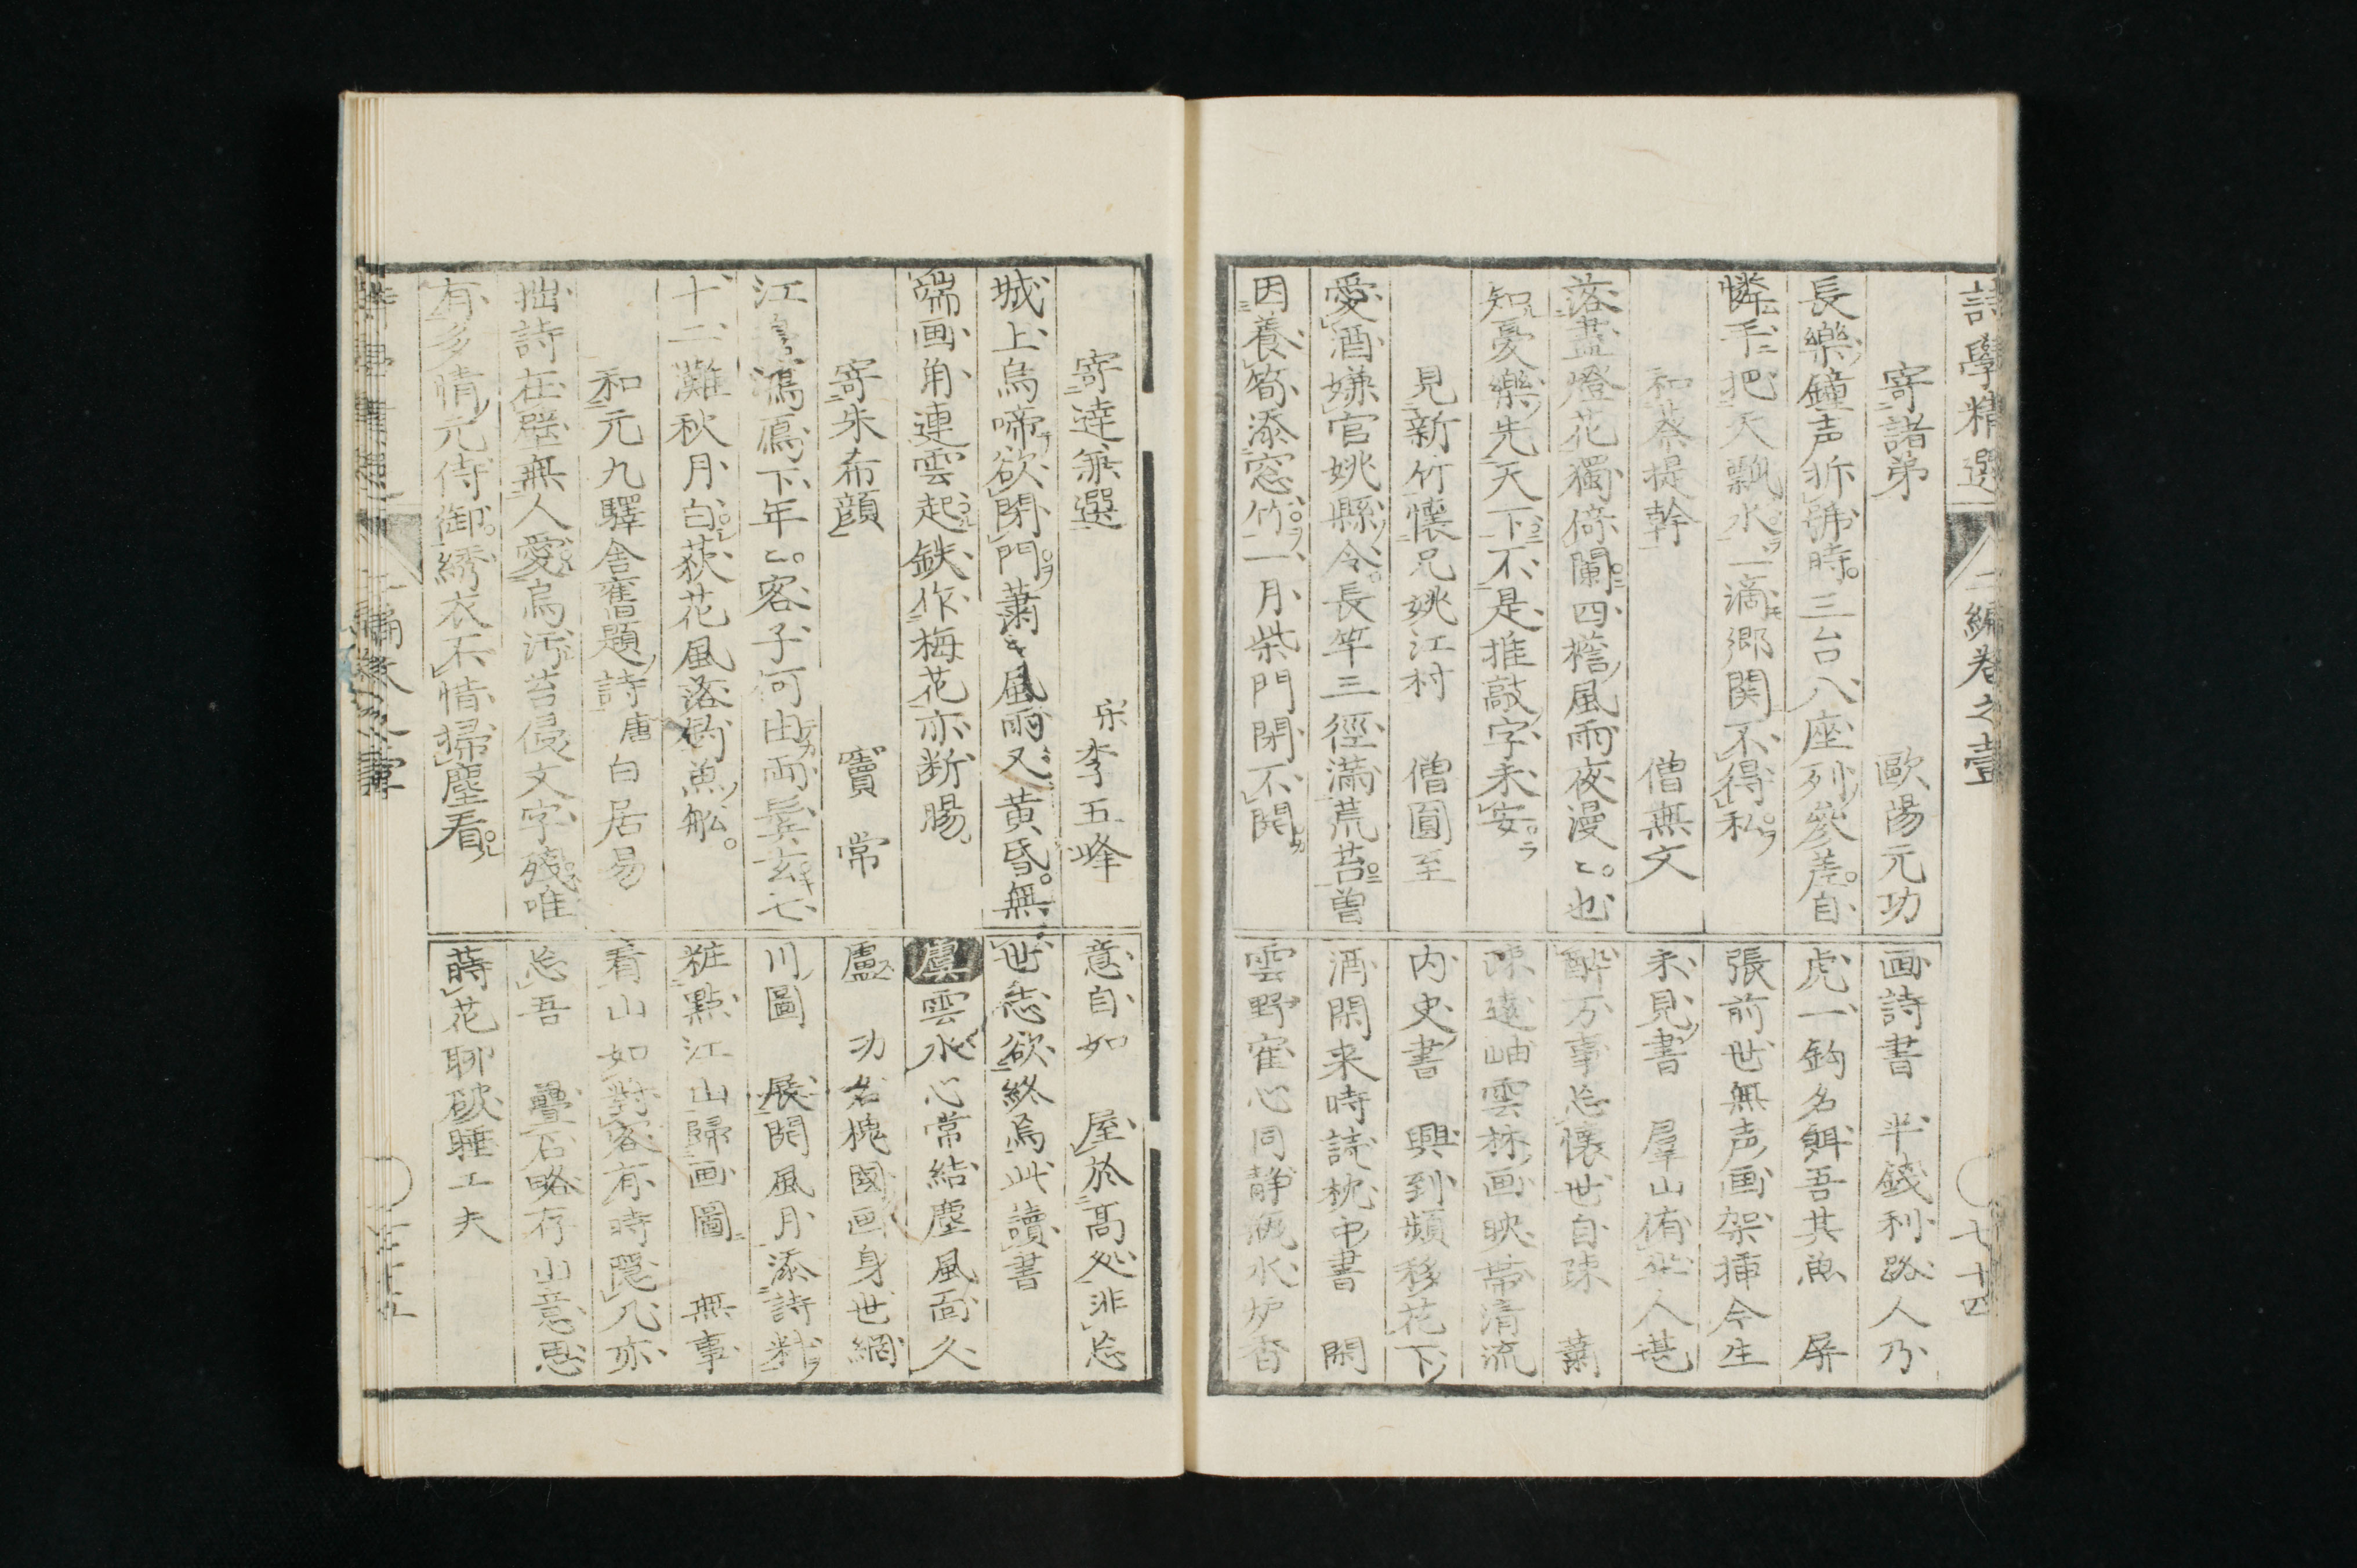 詩學精選 二編卷之壹 七十四
寄諸弟 歐陽元功
長樂鐘声拆號時三台八座列參差自
憐手把天瓢水一滴郷関不得私
和蔡提幹 僧無文
落盡燈花獨倚闌四檐風雨夜漫〻也
知憂樂先天下不是推敲字未安
見新竹懷兄姚江村 僧圓至
愛酒嫌官姚縣令長竿三徑滿荒苔曽
因養筍添窓竹一月柴門閉不開
画詩書 半錢利路人乃
虎一鈎名餌吾其魚 屏
張前世無声画架挿今生
未見書 羣山侑坐人甚
酔万事忘懷世自疎 蕭
疎遠岫雲林画映帯清流
内史書 興到頻移花下
酒閑来時詩枕中書 閑
雲野寉心同静瓶水炉香
寄達無選 宋李五峰
城上烏啼欲閉門蕭〻風雨又黄昏無
端画角連雲起鉄作梅花亦断腸
寄朱布顔 竇常
江 鴻鴈下年〻客子何由両鬂玄七
十二灘秋月白荻花風落釣魚舩
和元九驛舎舊題詩 唐白居易
拙詩在壁無人愛鳥汚苔侵文字殘唯
有多情元侍御綉衣不惜掃塵看
意自如 屋於高処非忘
世志欲終焉此讀書
虞 雲水心常結塵風面久
盧 功名槐國画身世網
川圖 展開風月添詩料
粧點江山歸画圖 無事
看山如對客有時隠几亦
忘吾 疊石略存山意思
蒔花聊破睡工夫
二編卷之壹 七十五